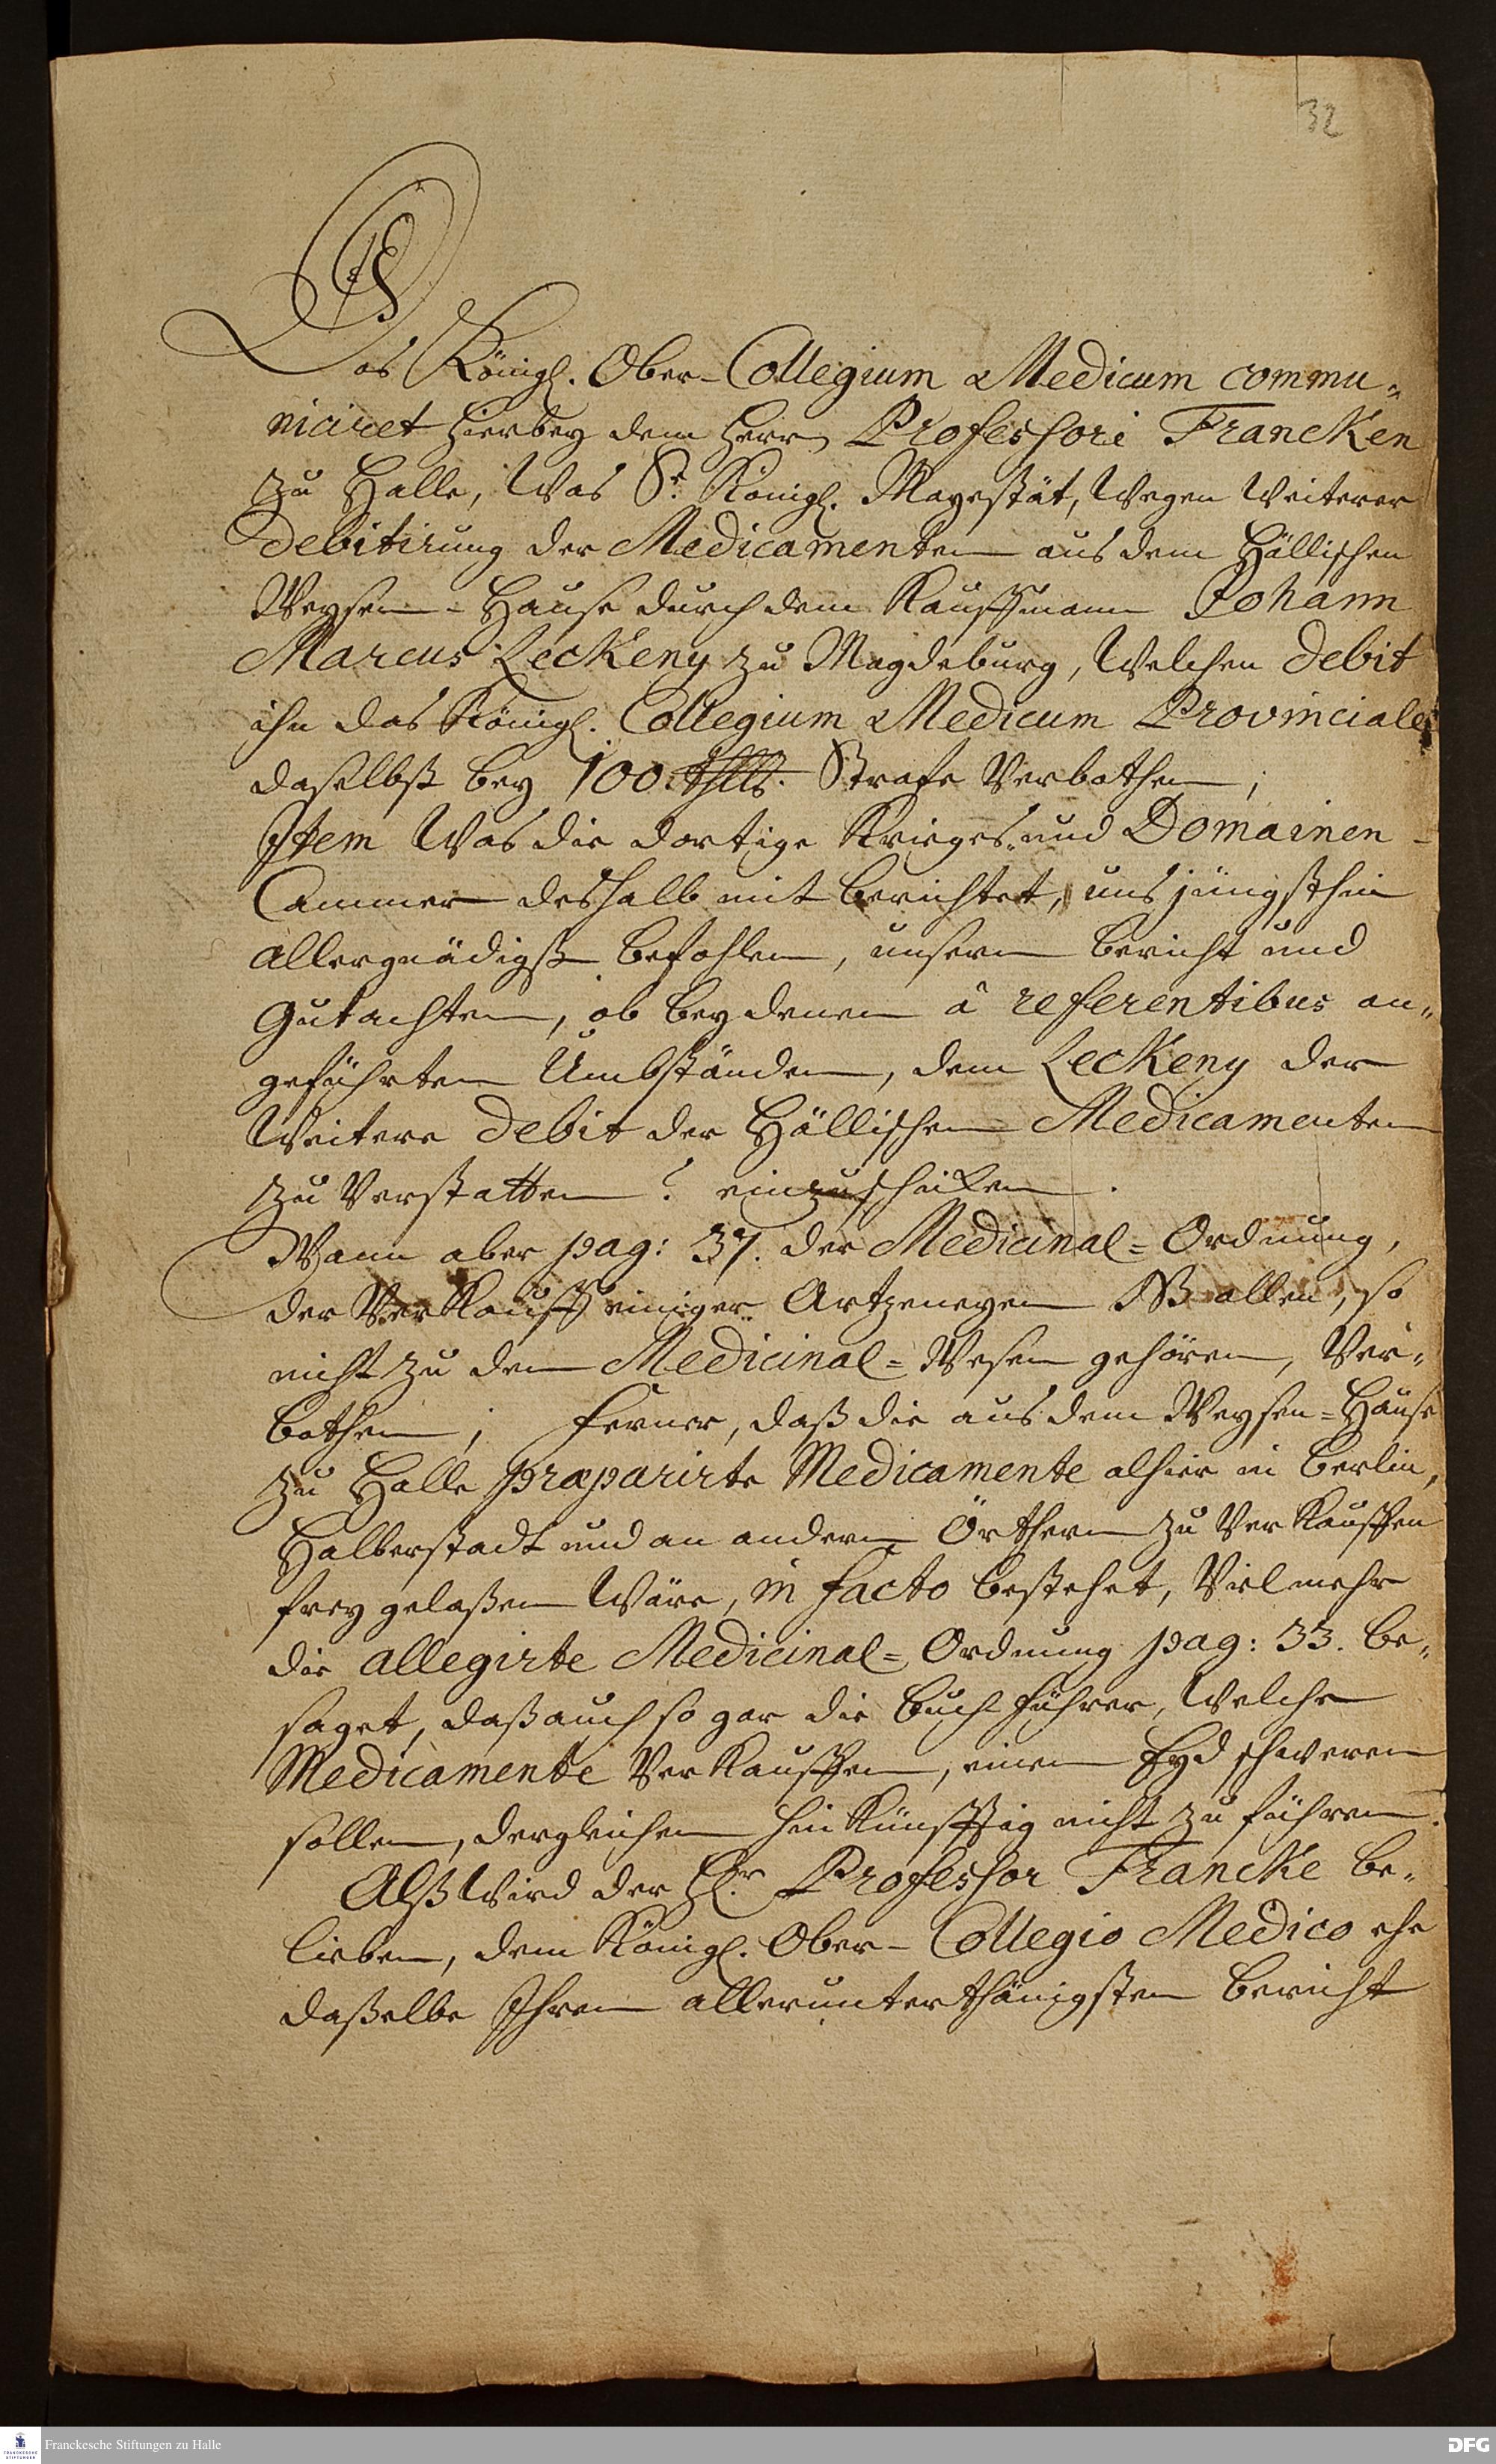 32
Das Königl. Ober-Collegium Medicum commu-
niciret hierbey dem Herrn Professori Francken
zu Halle, Was Sr. Königl. Mayestät, Wegen Weiterer
debitirung der Medicamenten aus dem Hällischen
Weysen-Hause durch dem Kauffmann Johann
Marcus Leckeny zu Magdeburg, Welchen debit
ihn das Königl. Collegium Medicum Provinciale
daselbst bey 100 Thlr. Strafe Verbothen,
Item Was die dortige Krieges- und Domainen-
Cammer deshalb mit berichtet, uns jüngsthin
allergnädigst befohlen, unsern bericht und
Gutachten, ob bey denen â referentibus an-
geführten Umbständen, dem Leckeny der
Weitere debit der Hällischen Medicamenten
zu Verstatten? einzuschicken.
Wann aber pag: 37. der Medicinal-Ordnung,
der Verkauff einiger Artzeneyen Allen, so
nicht zu dem Medicinal-Wesen gehören, Ver-
bothen; ferner, daß die aus dem Weysen-Hause
zu Halle præparirte Medicamente alhier in Berlin,
Halberstadt und an andern Örthern zu Verkauffen
frey gelaßen Wäre, in facto bestehet, Vielmehr
die allegirte Medicinal-Ordnung pag: 33. be-
saget, daß auch so gar die buchführer, Welche
Medicamente Verkauffen, einen Eyd schweren
sollen, dergleichen hinkünfftig nicht zu führen.
Alß Wird der Hr. Professor Francke be-
lieben, dem Königl. Ober-Collegio Medico ehe
daßelbe Ihren allerunterthänigsten bericht
Franckesche Stiftungen zu Halle
FRANCKESCHE STIFTUNGEN
DFG